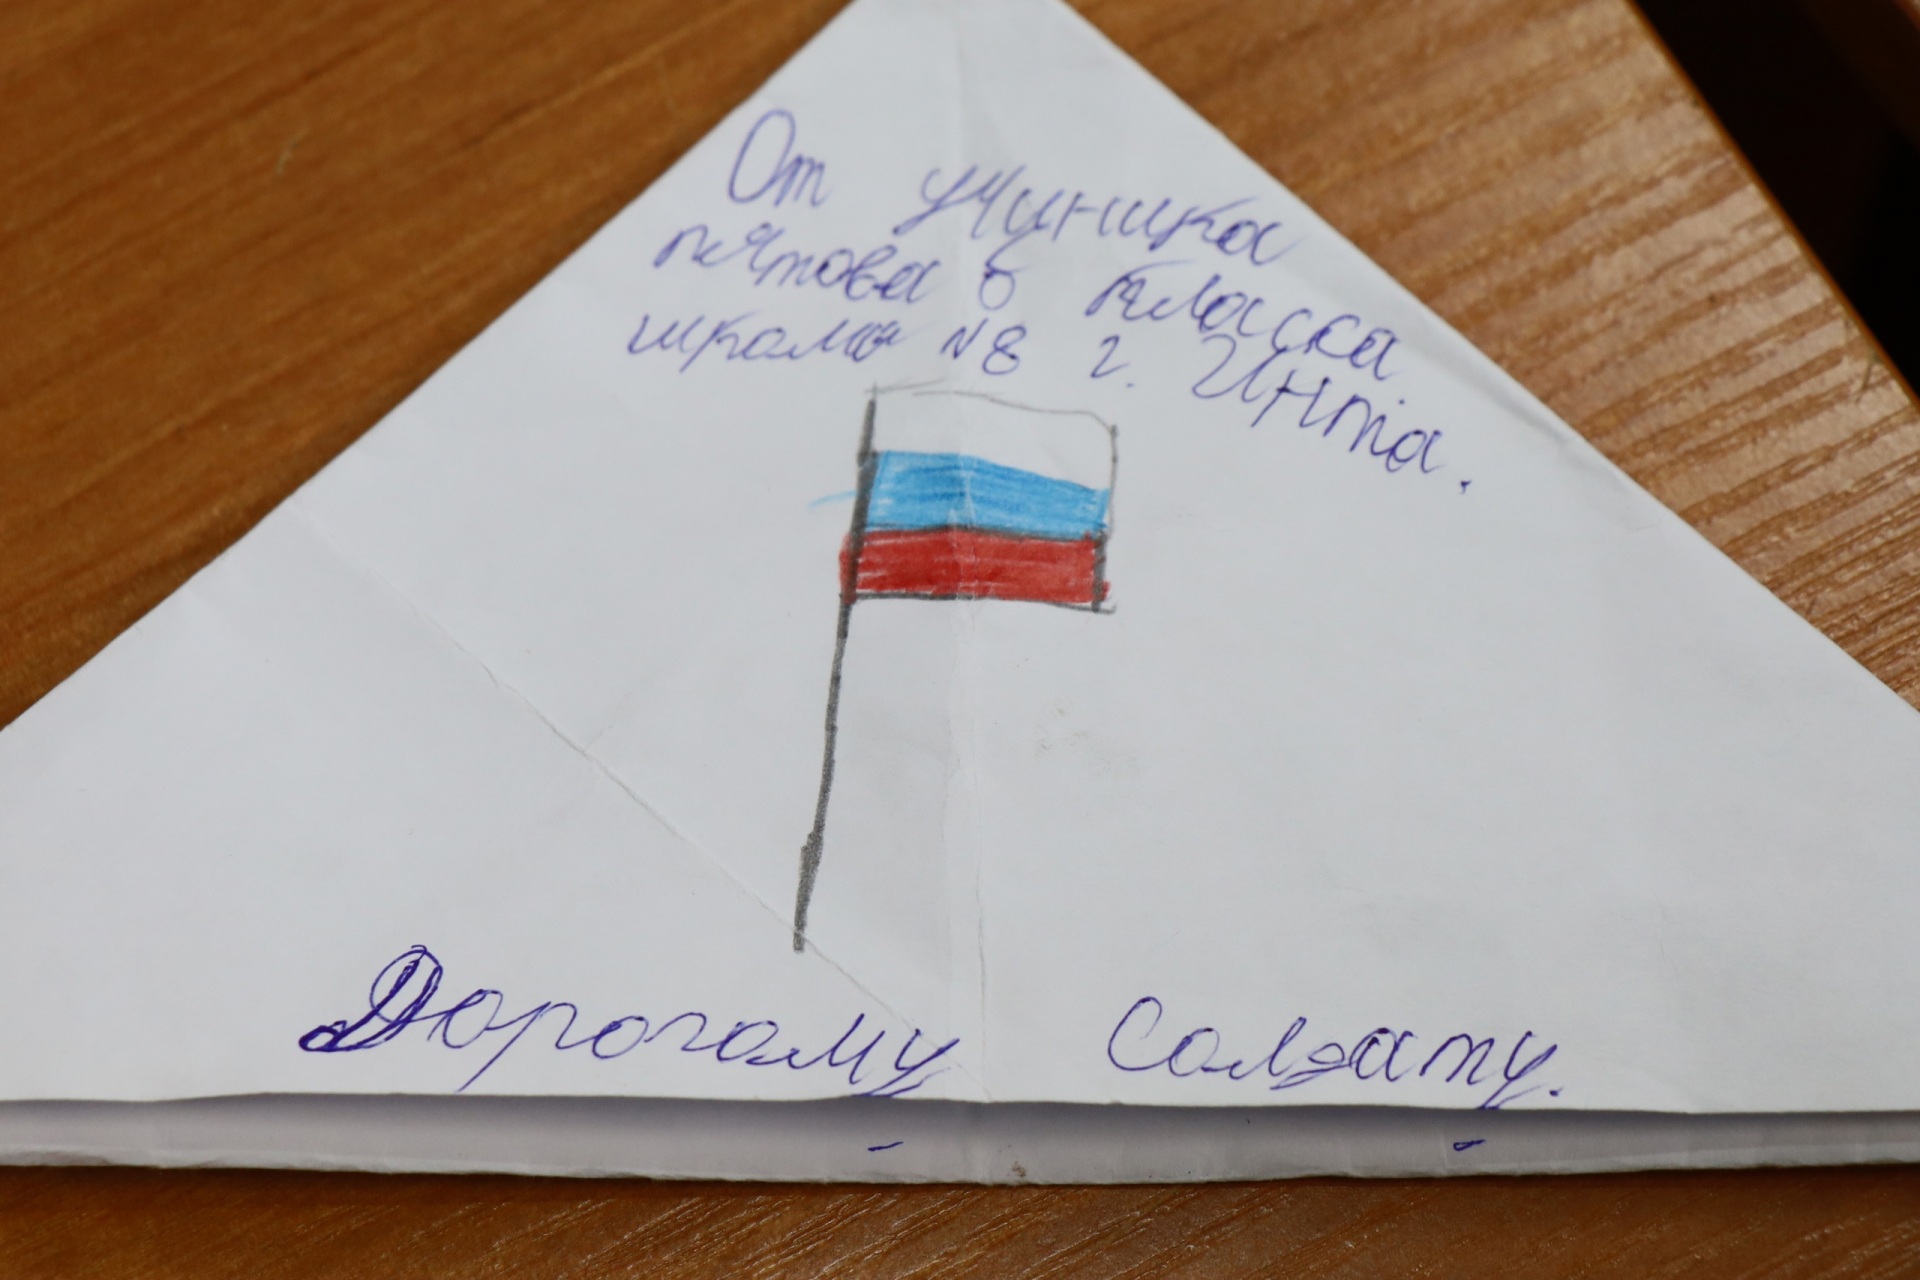 От учиника
пятова б класса
школы №8 г. Инта.
Дорогому Солдату.